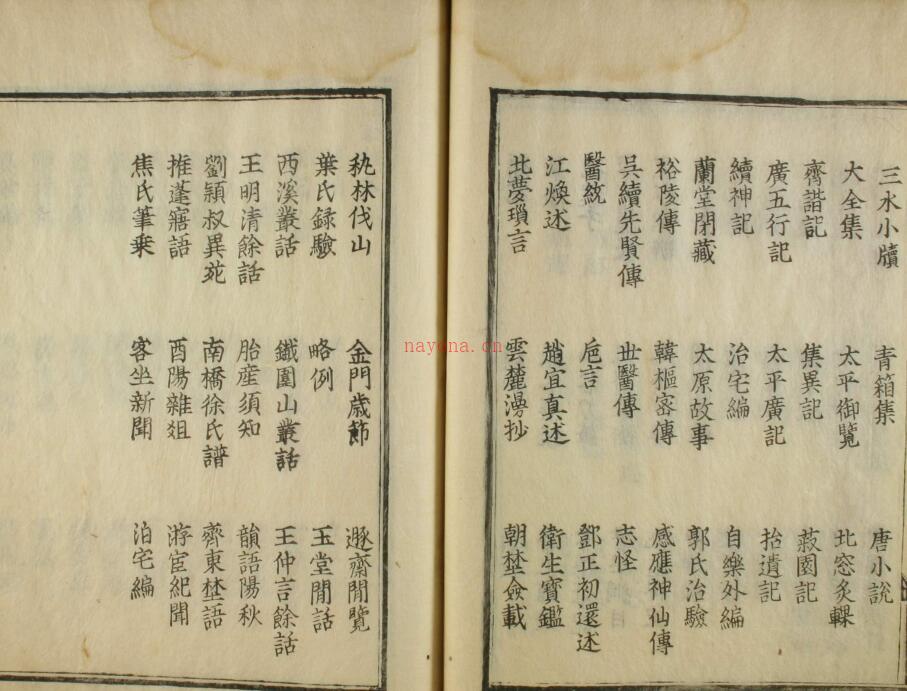 三水小牘 青箱集 唐小說
大全集 太平御覽 北窓炙輠
齊諧記 集異記 菽園記
廣五行記 太平廣記 拾遺記
續神記 治宅編 自樂外編
蘭堂閉藏 太原故事 郭氏治驗
裕陵傳 韓樞宻傳 感應神仙傳
吳續先賢傳 世醫傳 志怪
醫統 巵言 鄧正初還述
江煥述 趙宜真述 衛生寶鑑
北夢瑣言 雲麓漫抄 朝埜僉載
秇林伐山 金門歲節 遯齋閒覽
葉氏録驗 略例 玉堂閒話
西溪叢話 鐵圍山叢話 王仲言餘話
王明清餘話 胎産須知 韻語陽秋
劉頴叔異苑 南橋徐氏譜 齊東埜語
推蓬寤語 酉陽雜爼 游宦紀聞
焦氏筆乗 客坐新聞 泊宅編
nayona.cn